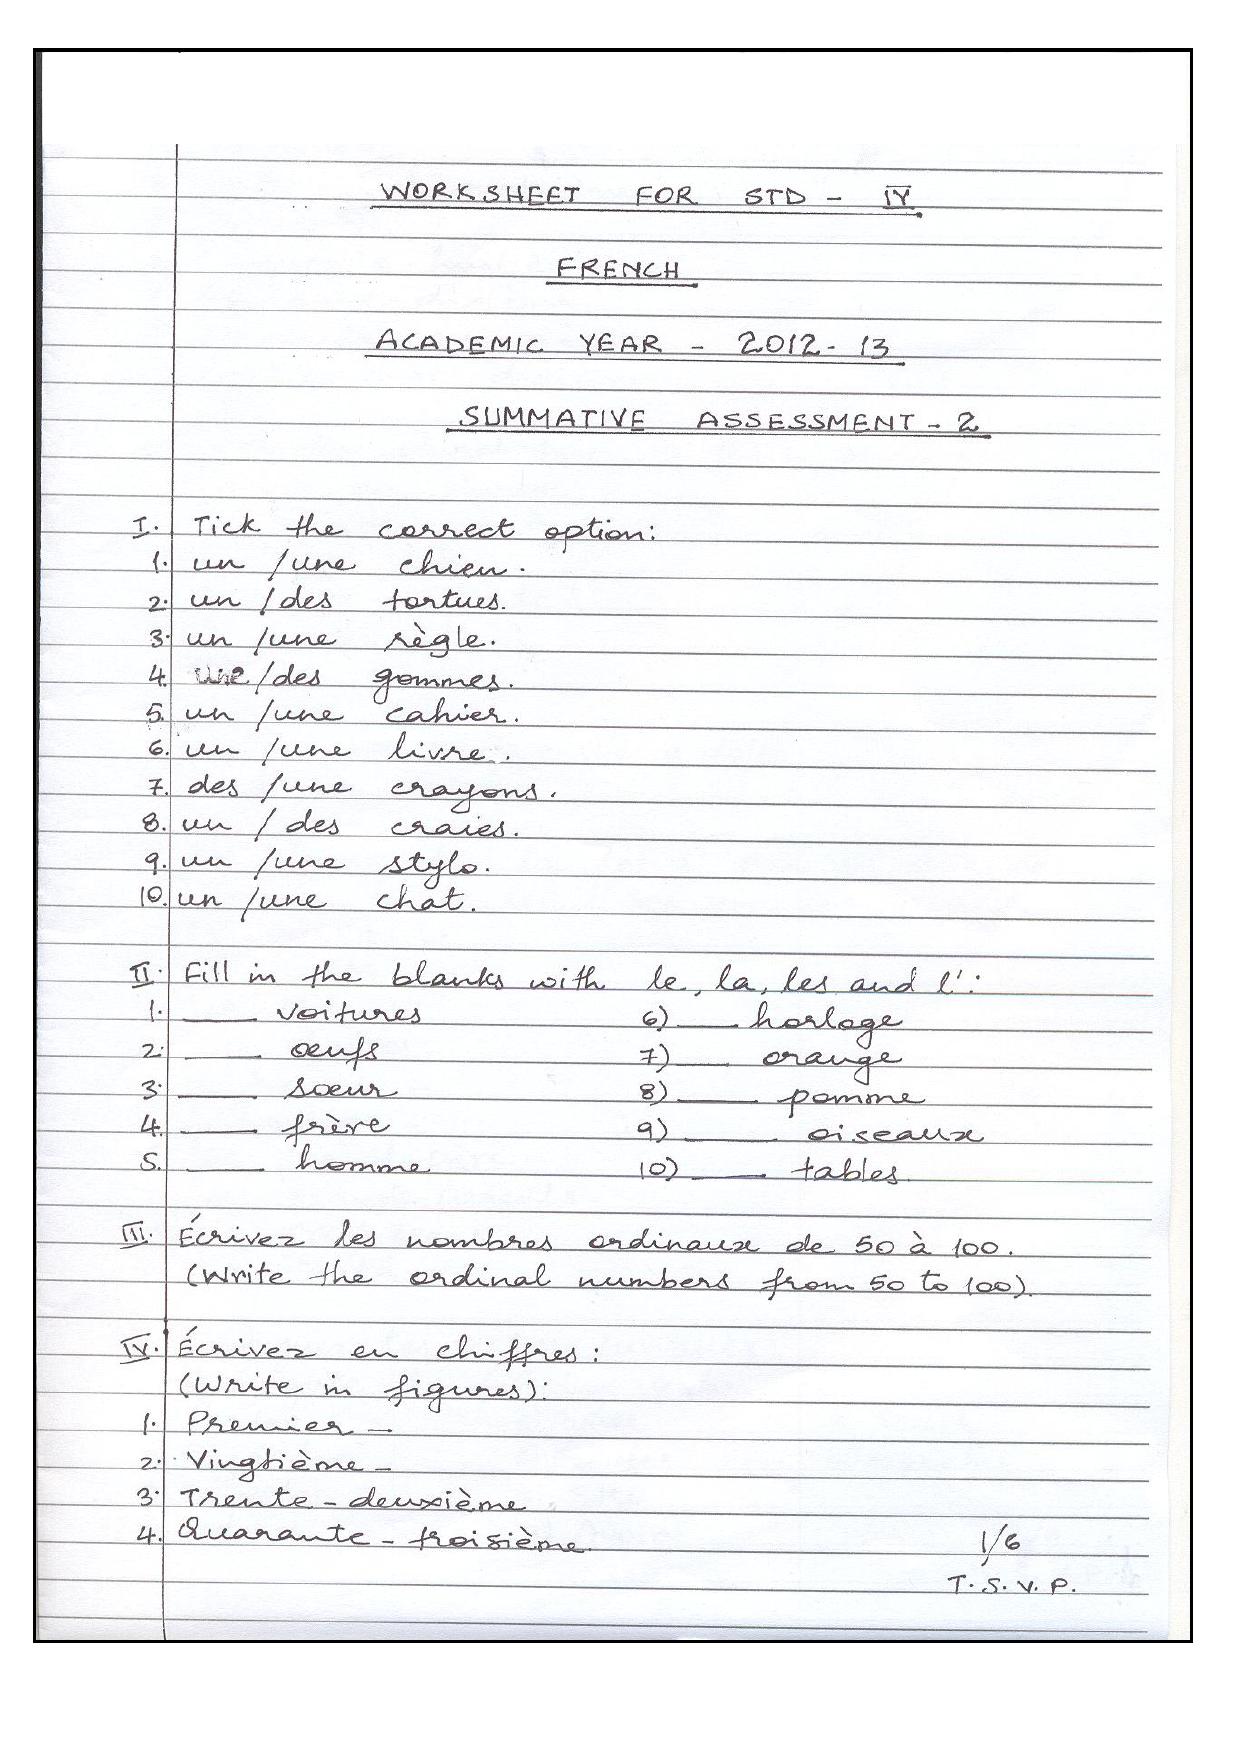 WORKSHEET FOR STD - IV
FRENCH
ACADEMIC YEAR - 2012-13
SUMMATIVE ASSESSMENT - 2
I. Tick the correct option:
1. un /une chien.
2. un /des tortues.
3. un /une règle.
4. une/des gommes.
5. un /une cahier.
6. un /une livre.
7. des /une crayons.
8. un / des craies.
9. un /une stylo.
10. un /une chat.
II. Fill in the blanks with le, la, les and l':
1. ____ voitures 6) ____ horloge
2. ____ oeufs 7) ____ orange
3. ____ soeur 8) ____ pomme
4. ____ frère 9) ____ oiseaux
5. ____ homme 10) ____ tables.
III. Écrivez les nombres ordinaux de 50 à 100.
(Write the ordinal numbers from 50 to 100).
IV. Écrivez en chiffres:
(Write in figures):
1. Premier -
2. Vingtième -
3. Trente - deuxième
4. Quarante - troisième.
1/6
T. S. V. P.